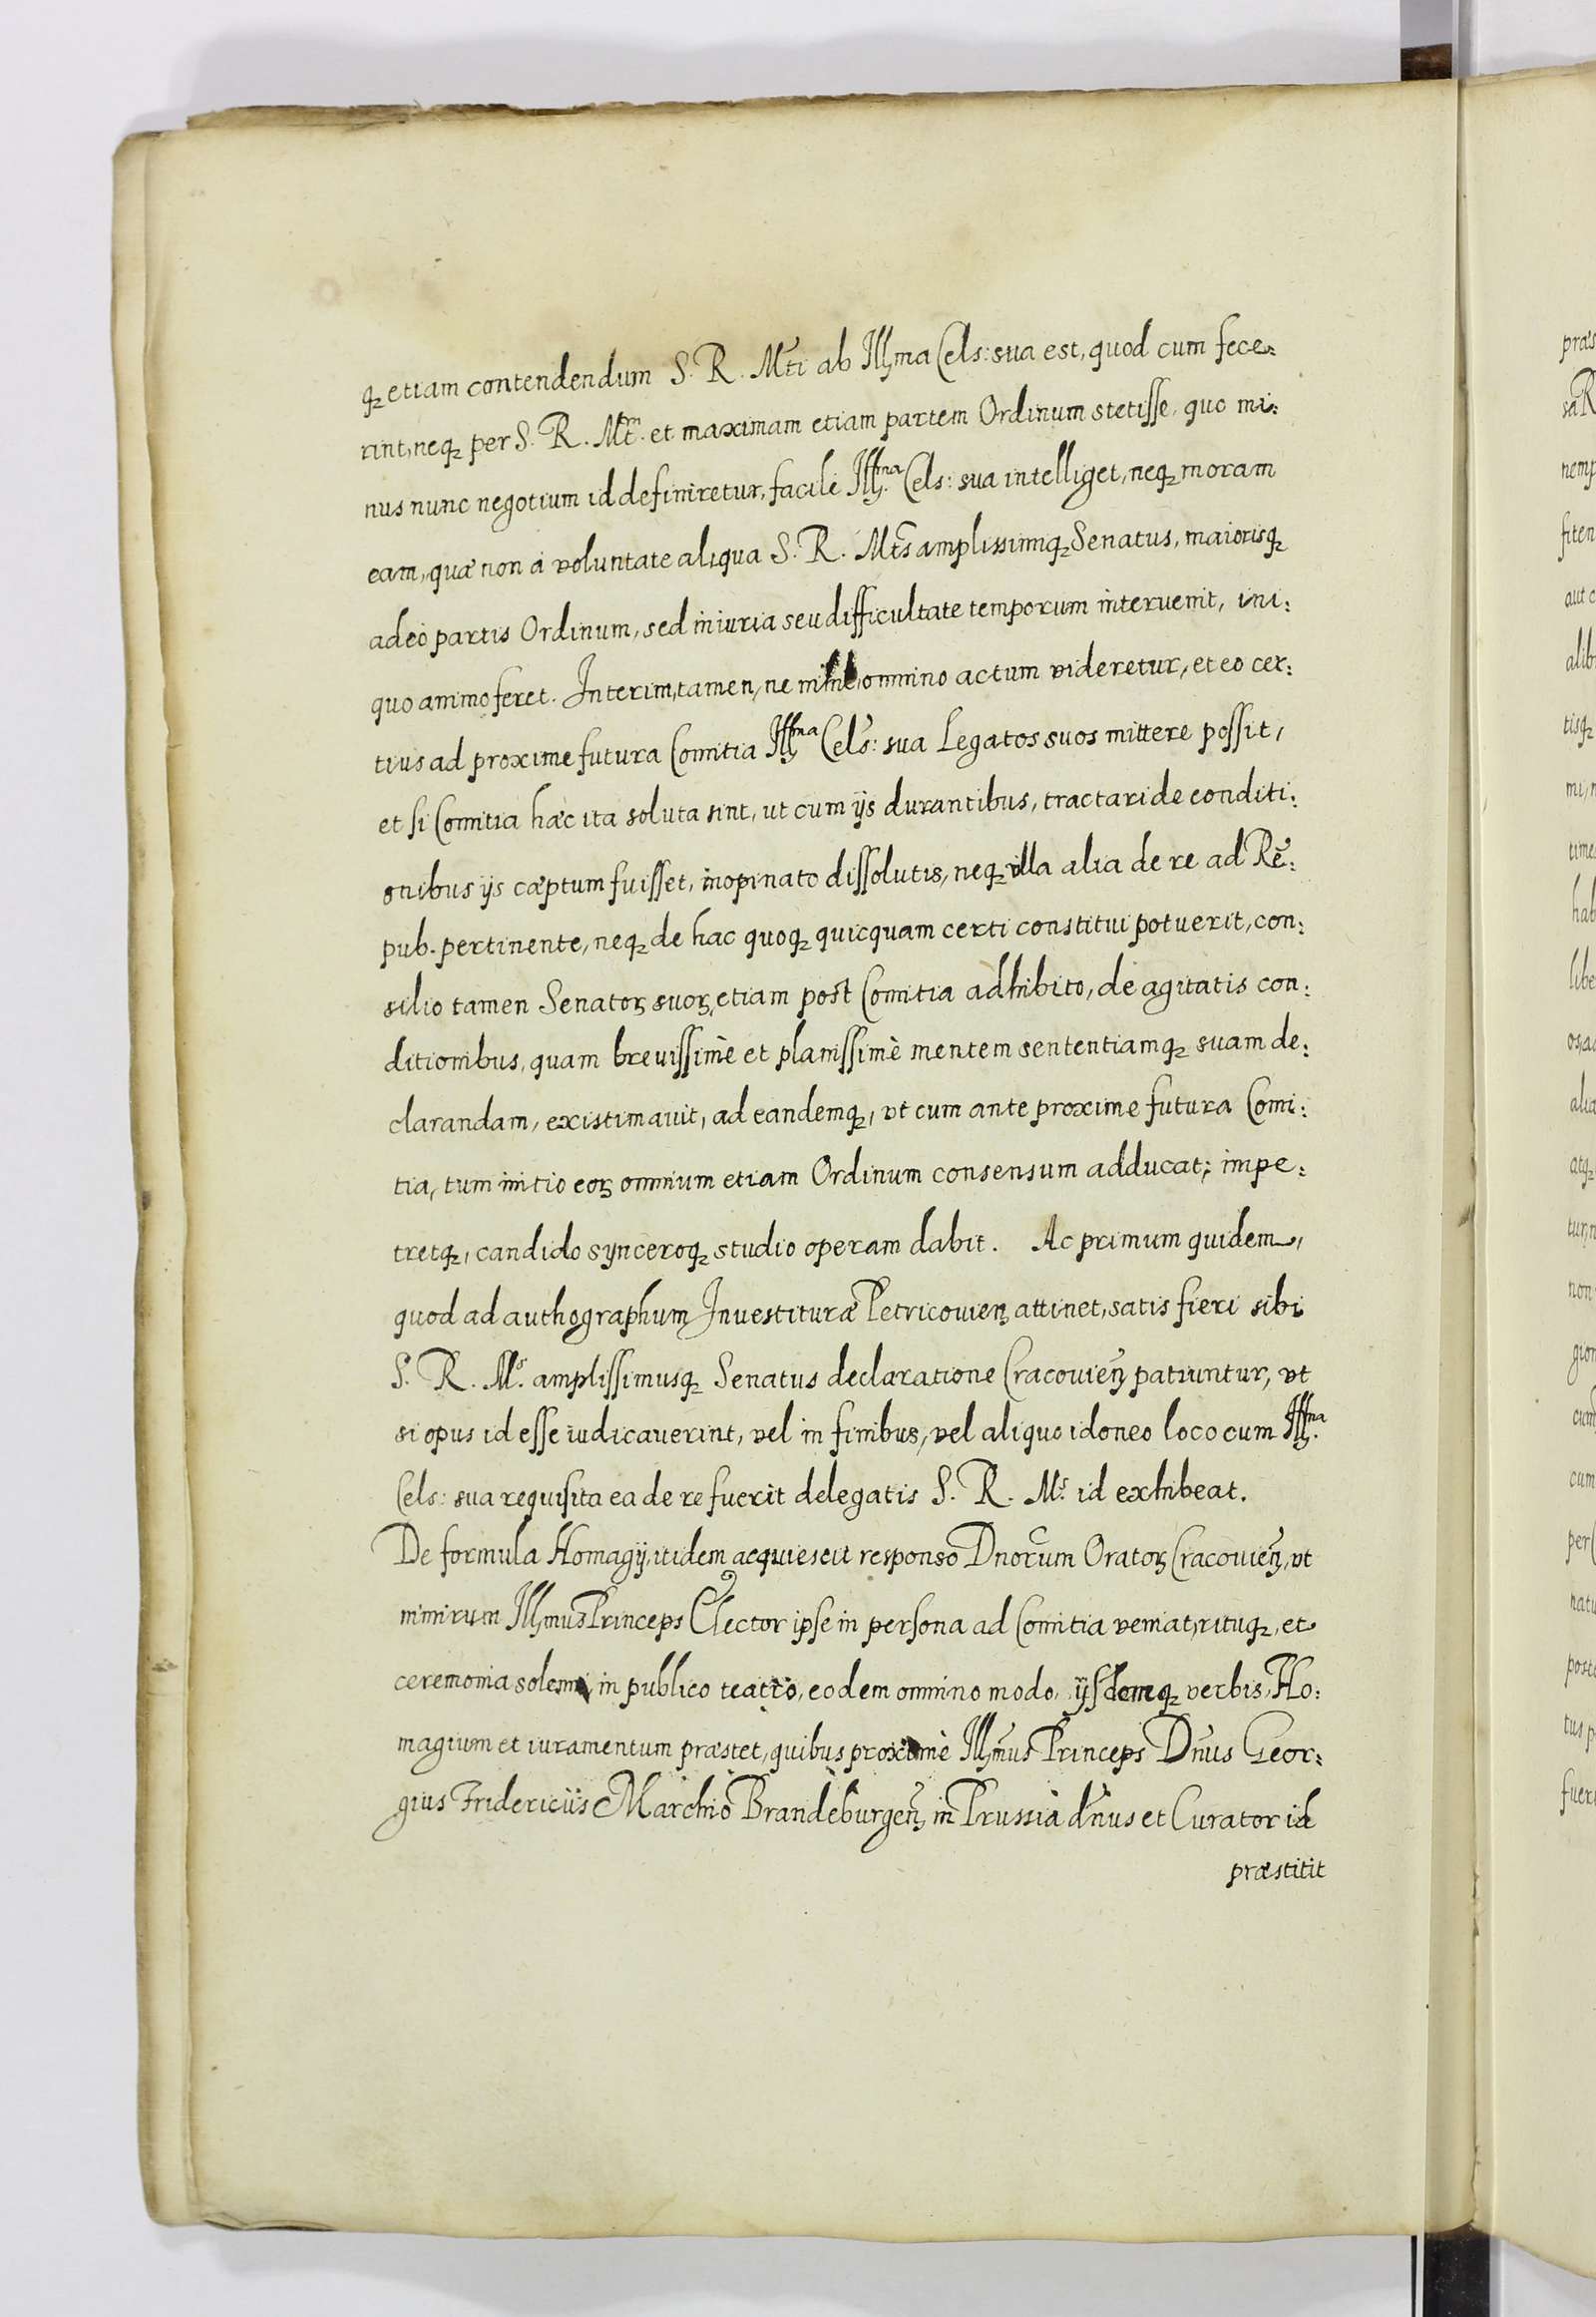 q₃ etiam contendendum S. R. M̃ti ab Illma Cels: sua est, quod cum fece:
rint, neq₃ per S. R. Mtẽm. et maximam etiam partem Ordinum stetisse, quo mi:
nus nunc negotium id definiretur, facile Illma. Cels: sua intelliget, neq₃ moram
eam, quæ non à voluntate aliqua S. R. Mtis amplissimiq₃ Senatus, maiorisq₃
adeò partis Ordinum, sed iniuria seu difficultate temporum interuenit, ini:
quo animo feret. Interim, tamen, ne omnino actum videretur, et eo cer:
tius ad proxime futura Comitia Illma Cels: sua Legatos suos mittere possit,
et si Comitia hæc ita soluta sint, ut cum ijs durantibus, tractari de conditi:
onibus ijs cæptum fuisset, inopinato dissolutis, neq₃ vlla alia de re ad Rē:
pub. pertinente, neq₃ de hac quoq₃ quicquam certi constitui potuerit, con:
silio tamen Senatoꝝ suoꝝ, etiam post Comitia adhibito, de agitatis con:
ditionibus, quam breuissimè et planissimè mentem sententiamq₃ suam de:
clarandam, existimauit, ad eandemq₃, vt cum ante proxime futura Comi:
tia, tum initio eoꝝ omnium etiam Ordinum consensum adducat; impe:
tretq₃, candido synceroq₃ studio operam dabit. Ac primum quidem,
quod ad authographum Inuestituræ Petricouieñ attinet, satis fieri sibi
S. R. Ms. amplissimusq₃ Senatus declaratione Cracouieñ patiuntur, vt
si opus id esse iudicauerint, vel in finibus, vel aliquo idoneo loco cum Illma.
Cels: sua requisita ea de re fuerit delegatis S. R. Ms. id exhibeat.
De formula Homagij, itidem acquiescit responso Dnorum Oratoꝝ Cracouieñ, vt
nimirum Illmus Princeps Elector ipse in persona ad Comitia veniat, rituq₃, et
ceremonia solemni, in publico teatro, eodem omnino modo, ijsdemq₃ verbis, Ho:
magium et iuramentum præstet, quibus proximè Illmus Princeps Dñus Geor:
gius Fridericus Marchio Brandeburgeñ, in Prussia dñus et Curator id
præstitit